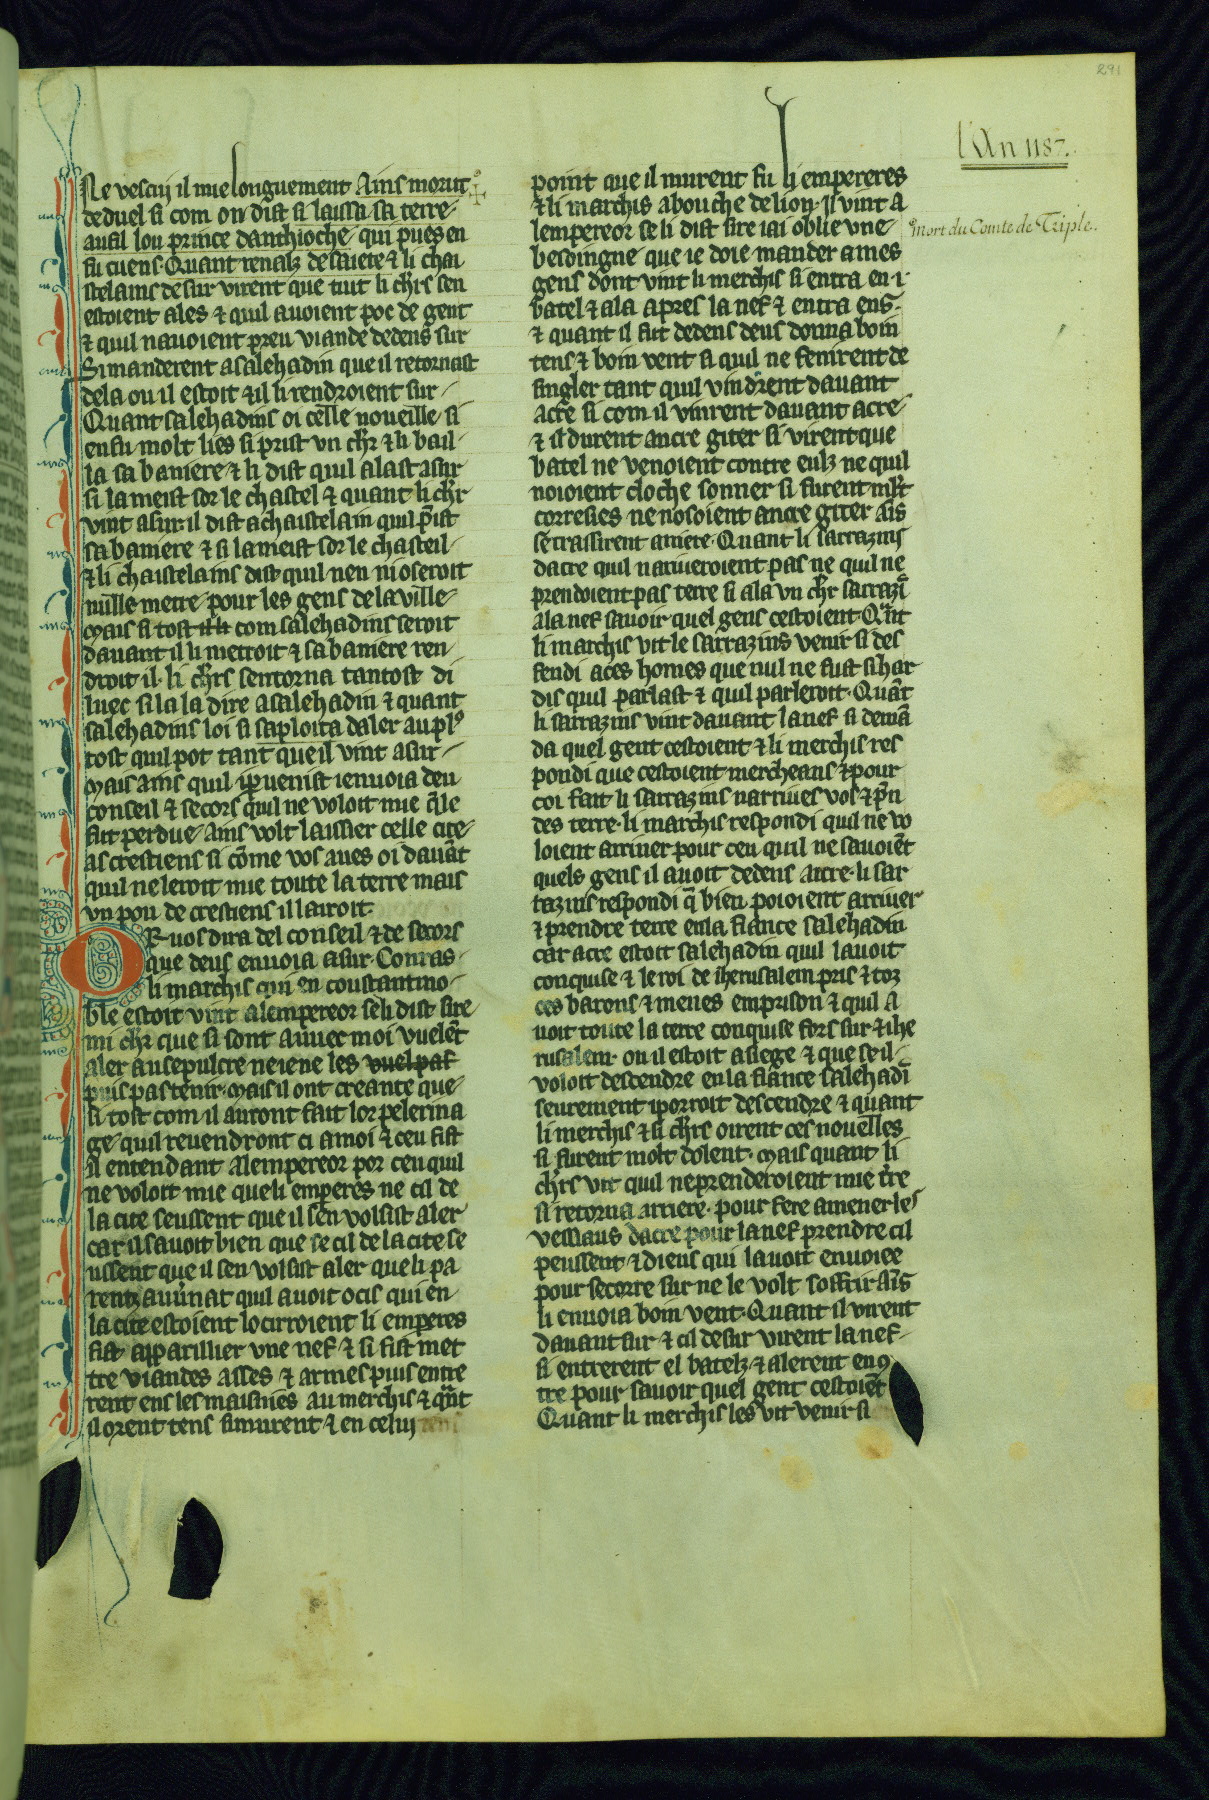 291
l'An 1187.
Ne vescuj il mie longuement Ains morut
de duel si com on dist si laissa sa terre
aufil lou prince danthioche qui pues en
fu cuens. Quant renalz de saiete & li chai
stelains desur virent que tuit li chrs sen
estoient ales & quil auoient poc de gent
& quil nauoient preu viande dedens sur
Si manderent asalehadin que il retornast
dela ou il estoit & il li rendroient sur
Quant salehadins oi celle nouelle si
enfu molt lies si prist vn chr & li bail
la sa baniere & li dist quil alast asur
si la meist sor le chastel & quant li chr
vint asur il dist achaistelain quil prist
sa baniere & si lameist sor le chasteil
& li chaistelains dist quil nen ni oseroit
nulle metre pour les gens dela ville
Mais si tost com salehadins seroit
dauant il li metroit & sa baniere ren
droit il. li chrs sentorna tantost di
luec si la la dire asalehadin & quant
salehadins loi si saploita daler au pl9
tost quil pot tant que il vint asur
Mais ains quil iparuenist ienuoia deu
conseil & secors quil ne voloit mie qle
fut perdue Ains volt laissier celle cite
as crestiens si come vos aues oi dauāt
quil neleroit mie toute la terre mais
vn pou de crestiens il lairoit.
Or uos dira del conseil & de secors
que deus enuoia asur. Conras
li marchis qui en constantino
ble estoit vint alempereor seli dist sire
mi chr que si sont auuec moi vuelēt
aler ausepulcre neiene les vuelpas
puis pas tenir. Mais il ont creante que
si tost com il auront fait lor pelerina
ge quil reuendront ci amoi & ceu fist
il entendant alempereor por ceu quil
ne voloit mie queli emperes ne cil de
la cite seussent que il sen volsist aler
car il sauoit bien que se cil de la cite se
ussent que il sen volsist aler queli pa
rentz auurnat quil auoit ocis qui en
la cite estoient locirroient li emperes
fist apparillier vne nef & si fist met
tre viandes asses & armes puis entre
rent ens les maisnies au merchis & qāt
il orent tens simurent & en celuj tens
point que il murent fu li empereres
& li marchis abouche de lion. Il vint a
lempereor se li dist sire iai oblie vne
besoingne que ie doie mander a mes
gens dont vint li merchis si entra en .i.
batel & ala apres la nef & entra ens
& quant il fut dedens deus donna boin
tens & boin vent si quil ne fenirent de
singler tant quil vindrent dauant
acre si com il vinrent dauant acre
& il durent ancre giter si virent que
batel ne venoient contre eulz ne quil
noioient cloche sonner si furent mlt
corresies ne nosoient ancre giter ais
se traissirent arriere. Quant li sarrazins
dacre quil nariueroient pas ne quil ne
prendoient pas terre si ala vn chr sarrazi
ala nef sauoir quel gens cestoient. Qāt
li marchis vit le sarrazins venir si des
fendi aces homes que nul ne fust si har
dis quil parlast & quil parleroit. Quāt
li sarrazins vint dauant la nef si demā
da quel gent cestoient & li merchis res
pondi que cestoient mercheans & pour
coi fait li sarrazins narriues vos & prn
des terre. li marchis respondi quil ne vo
loient arriuer pour ceu quil ne sauoiēt
quels gens il auoit dedens acre. li sar
razins respondi q̄ bien pooient arriuer
& prendre terre enla fiance salehadin
car acre estoit salehadin quil lauoit
conquise & le roi de iherusalem pris & toz
ces barons & menes emprison & quil a
uoit toute la terre conquise fors sur & ihe
rusalem. ou il estoit asiege & que se il
voloit descendre en la fiance salehadī
seurement iporroit descendre & quant
li merchis & si chrs oirent ces nouelles
si furent molt dolent. Mais quant li
chrs vit quil neprenderoient mie tre
si retorna arriere. pour fere amener les
vessiaus dacre pour lanef prendre cil
peussent & dieus qui lauoit enuoiee
pour secorre sur ne le volt soffrir ais
li enuoia boin vent. Quant il virent
dauant sur & cil desur virent la nef
si entrerent el batelz & alerent en 9
tre pour sauoir quel gent cestoiēt
Quant li merchis les vit venir si
mort du Comte de Triple.